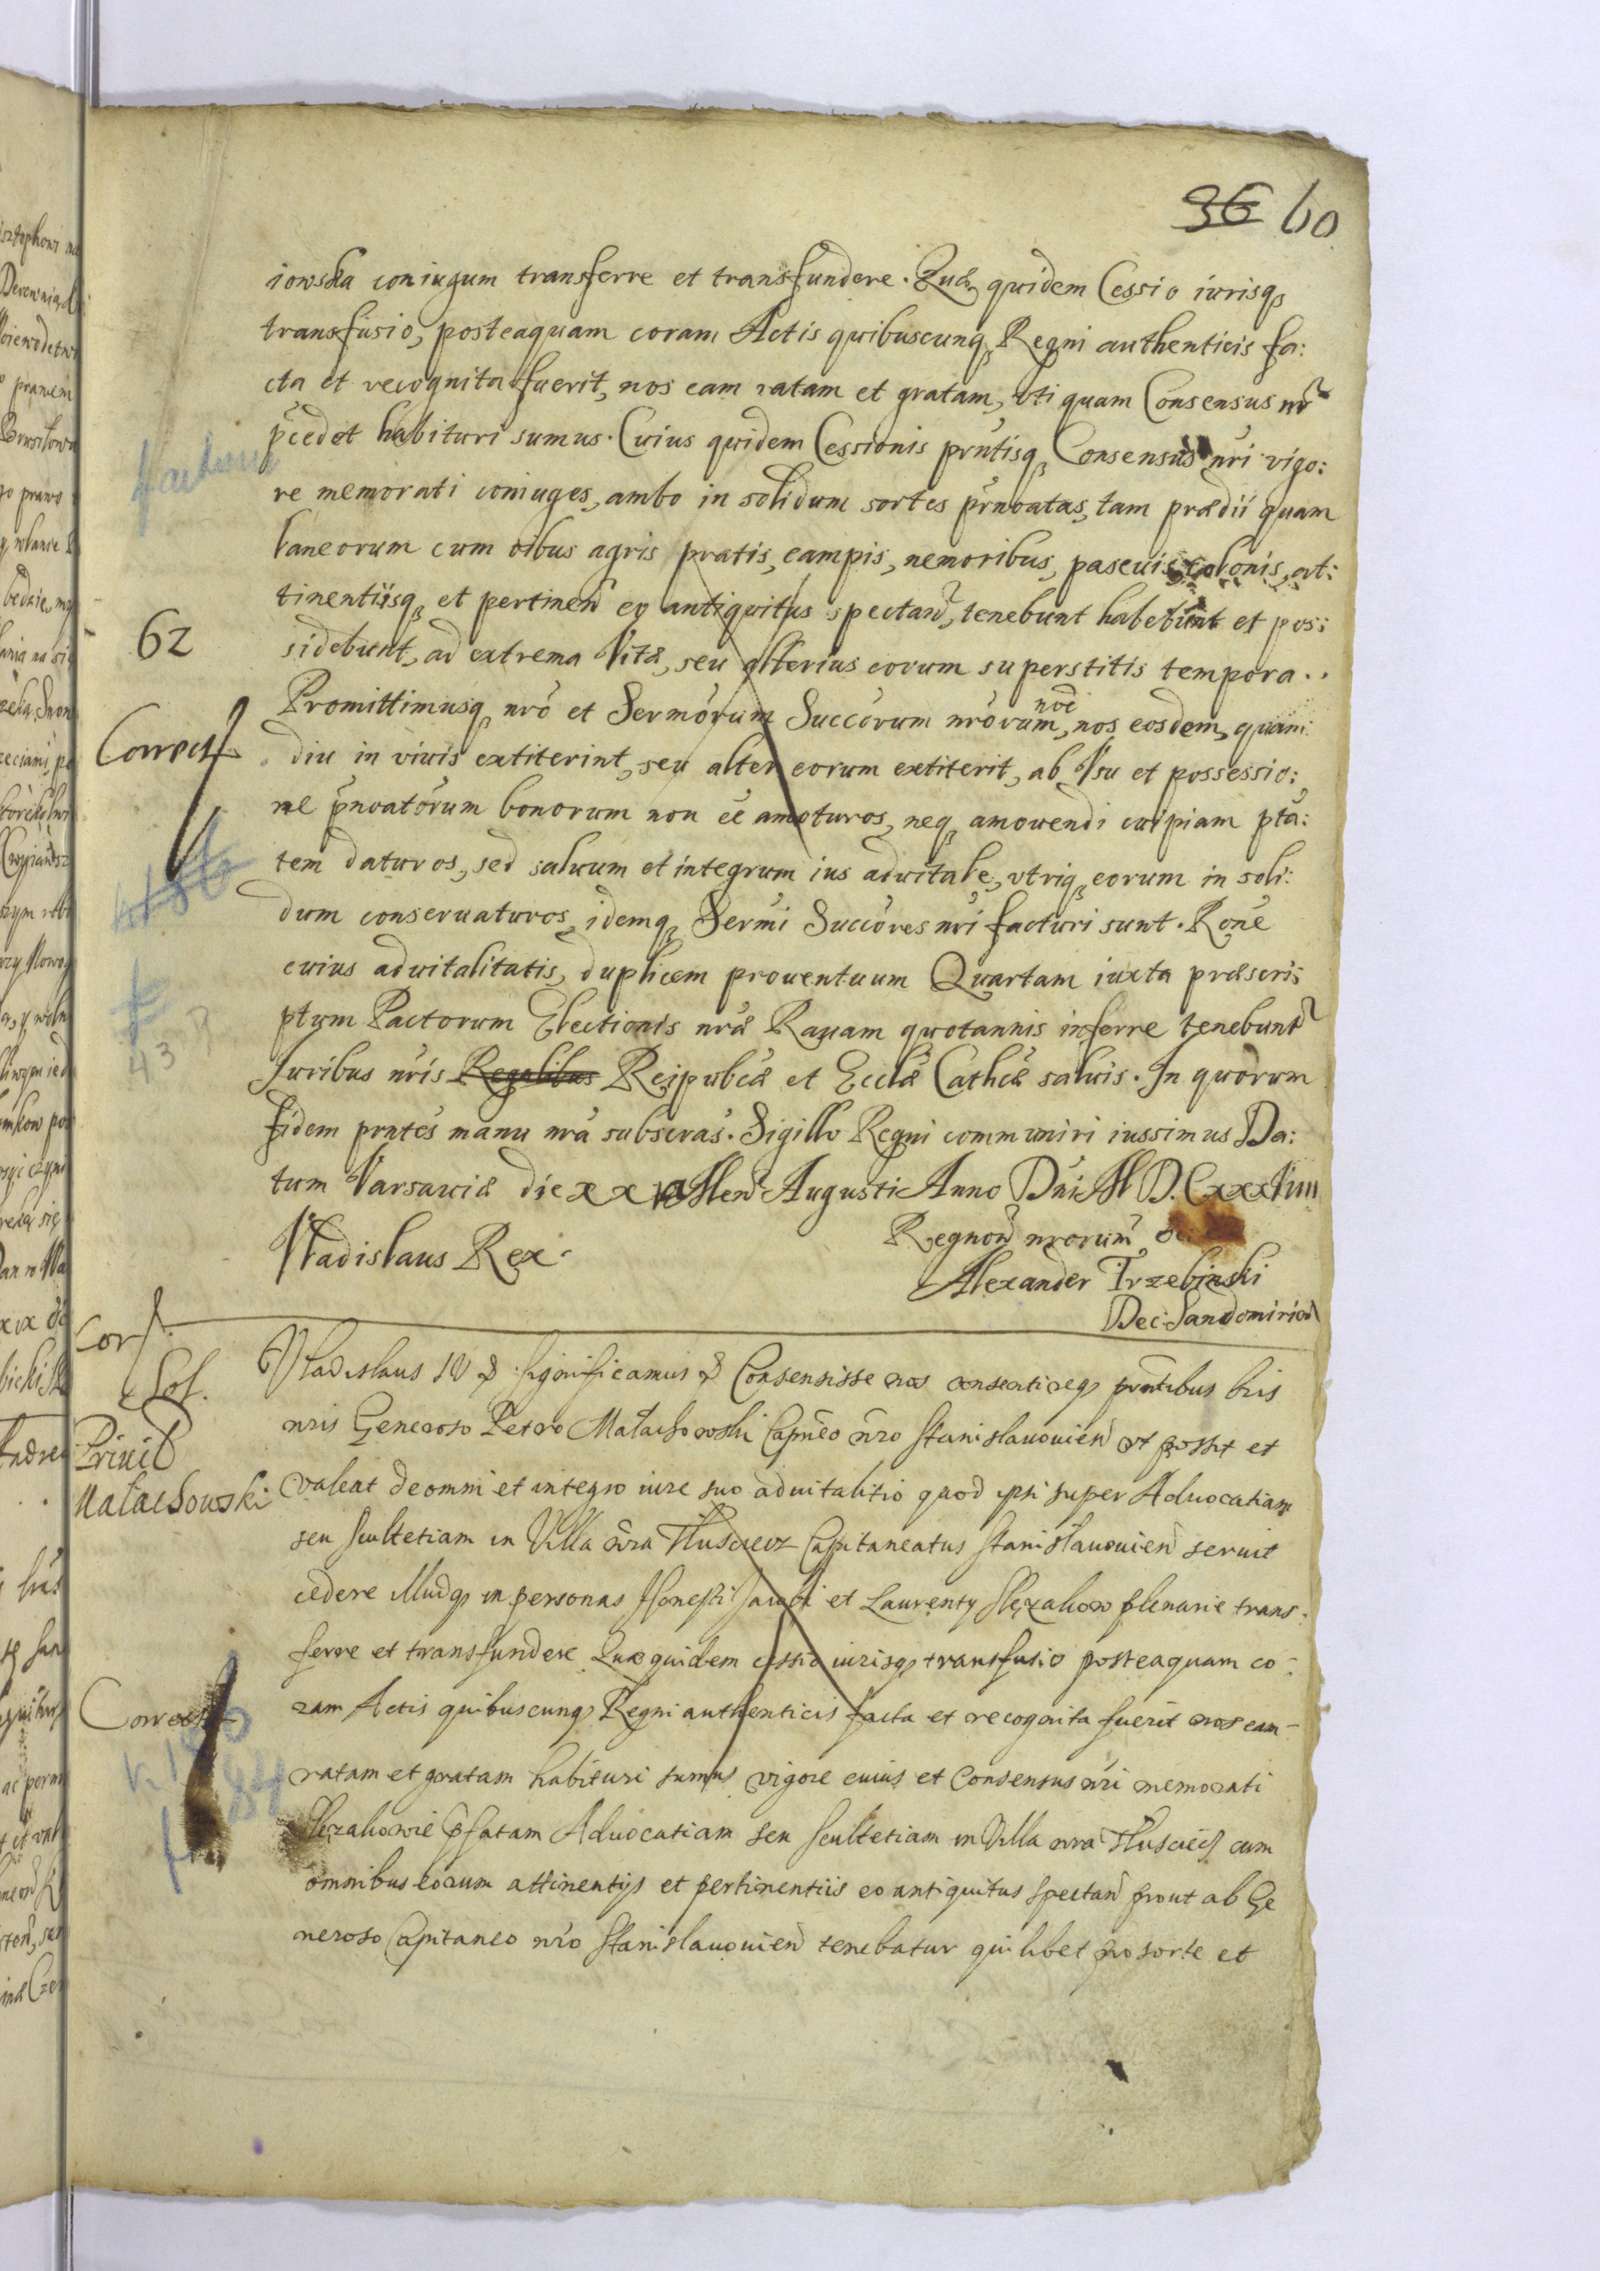 36 60
iowska coniugum transferre et transfundere. Quæ quidem Cessio iurisq́
transfusio, posteaquam coram Actis quibuscunq́ Regni authenticis fa:
cta et recognita fuerit, nos eam ratam et gratam, vti quam Consensus nr̃
p̃cedet habituri sumus. Cuius quidem Cessionis pr̃ntisq́ Consensus nr̃i vigo:
re memorati coniuges, ambo in solidum sortes pr̃noatas, tam prædii quam
laneorum cum oĩbus agris pratis, campis, nemoribus, pascuis, colonis, at:
tinentiisq́ et pertineñ eo antiquitus spectañ, tenebunt habebunt et pos:
62
sidebunt, ad extrema Vitæ, seu alterius eorum superstitis tempora..
Promittimusq́ nr̃o et Sermõrum Succõrum nr̃orum, noĩe nos eosdem, quam
Correct
diu in viuis extiterint, seu alter eorum extiterit, ab Vsu et possessio:
ne p̃noatõrum bonorum non eẽ amoturos, neq́ amouendi cuipiam ptã:
tem daturos, sed saluum et integrum ius aduitale, vtriq́ eorum in soli:
dum conseruaturos, idemq́ Serm̃i Succõres nr̃i facturi sunt. Rõne
cuius aduitalitatis, duplicem prouentuum Quartam iuxta præscri:
ptum Pactorum Electionis nr̃æ Rauam quotannis inferre tenebunt̃
43
Iuribus nr̃is Regalibus Reipub̃cæ et Eccl̃æ Cath̃cæ saluis. In quorum
fidem pr̃ntes manu nr̃a subscras̃. Sigillo Regni communiri iussimus Da:
tum Varsauiæ die xx Mens̃ Augusti Anno Dñi M D. Cxxxviii
Regnoȓ nrorum̃
Vladislaus Rex.
Alexander Trzebinski
Dec: Sandomirieñ
Cor
Vladislaus IV & significamus & Consensisse nos consentireq́ prñtibus lr̃is
nr̃is Generoso Petro Małachowski Capñeo nr̃o Stanislauouieñ vt possit et
Priuil
Małachowski
valeat de omni et integro iure suo aduitalitio quod ipsi super Aduocatiam
seu scultetiam in Villa nr̃a Tłuscz Capitaneatus Stanislauouieñ seruit
cedere illudq́ in personas Honesti Jacobi et Laurenty plenarie trans:
ferre et transfundere Quæ quidem cessio iurisq́ transfusio posteaquam co:
Correct
ram Actis quibuscunq́ Regni authenticis facta et recognita fuerit nos eam
ratam et gratam habituri sumus vigore cuius et Consensus nr̃i memorati
p̃fatam Aduocatiam seu scultetiam in Villa nr̃a cum
omnibus eorum attinentys et pertinentiis eo antiquitus spectañ prout ab Ge
neroso Capitaneo nr̃o Stanislauouieñ tenebatur quilibet pro sorte et